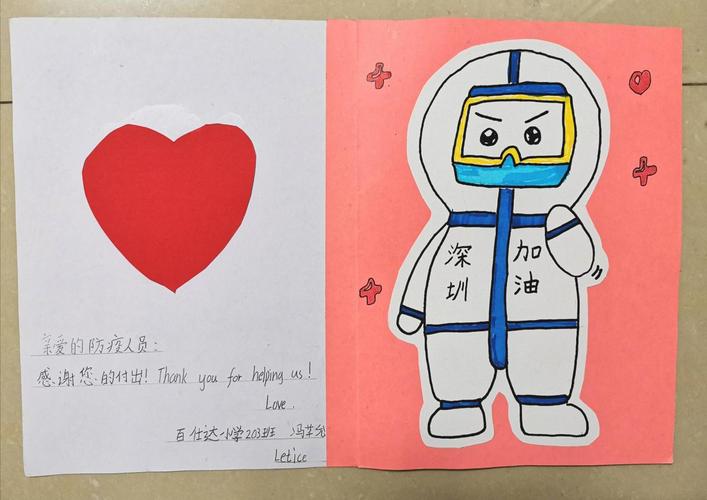 亲爱的防疫人员：
感谢您的付出! Thank you for helping us!
Love.
百仕达小学203班 冯芊
Letice
深圳
加油